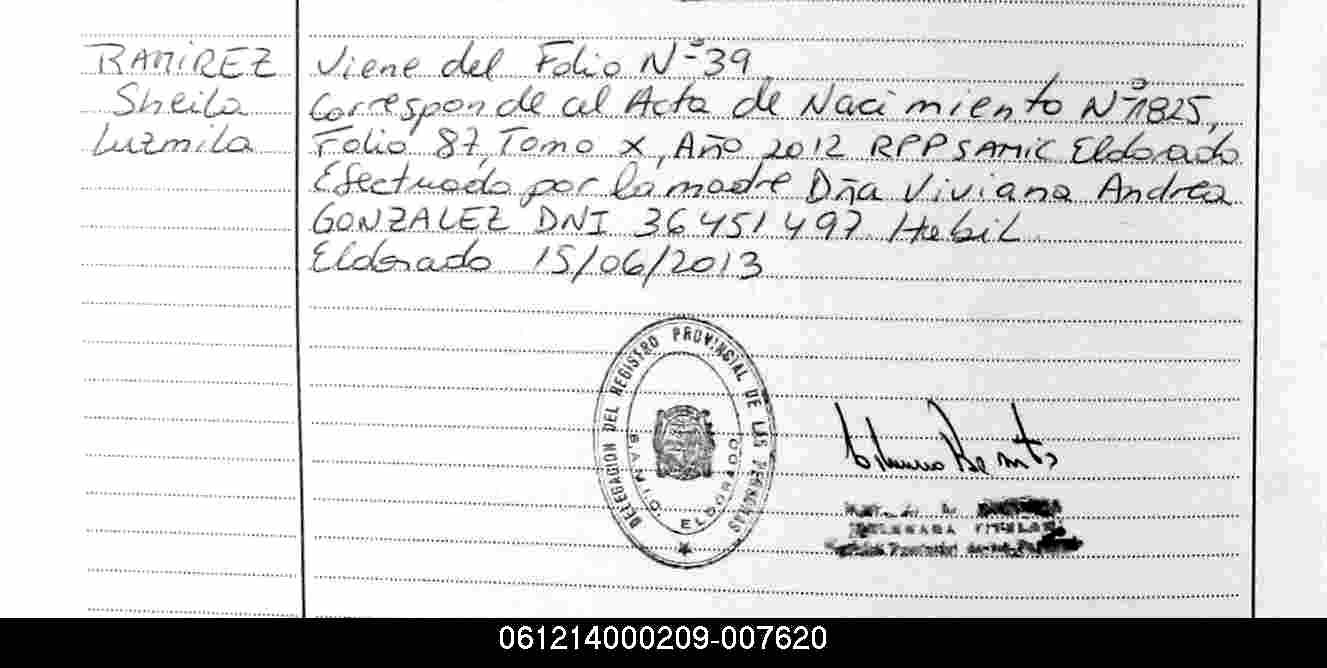 RAMIREZ
Sheila
Luzmila
Viene del Folio Nº 39
Corresponde al Acta de Nacimiento Nº 1825,
Folio 87, Tomo X, Año 2012 RPPSAMIC Eldorado
Efectuado por la madre Dña Viviana Andrea
GONZALEZ DNI 36451497 Habil
Eldorado 15/06/2013
DELEGACION DEL REGISTRO PROVINCIAL DE LAS PERSONAS
SAMIC ELDORADO
061214000209-007620